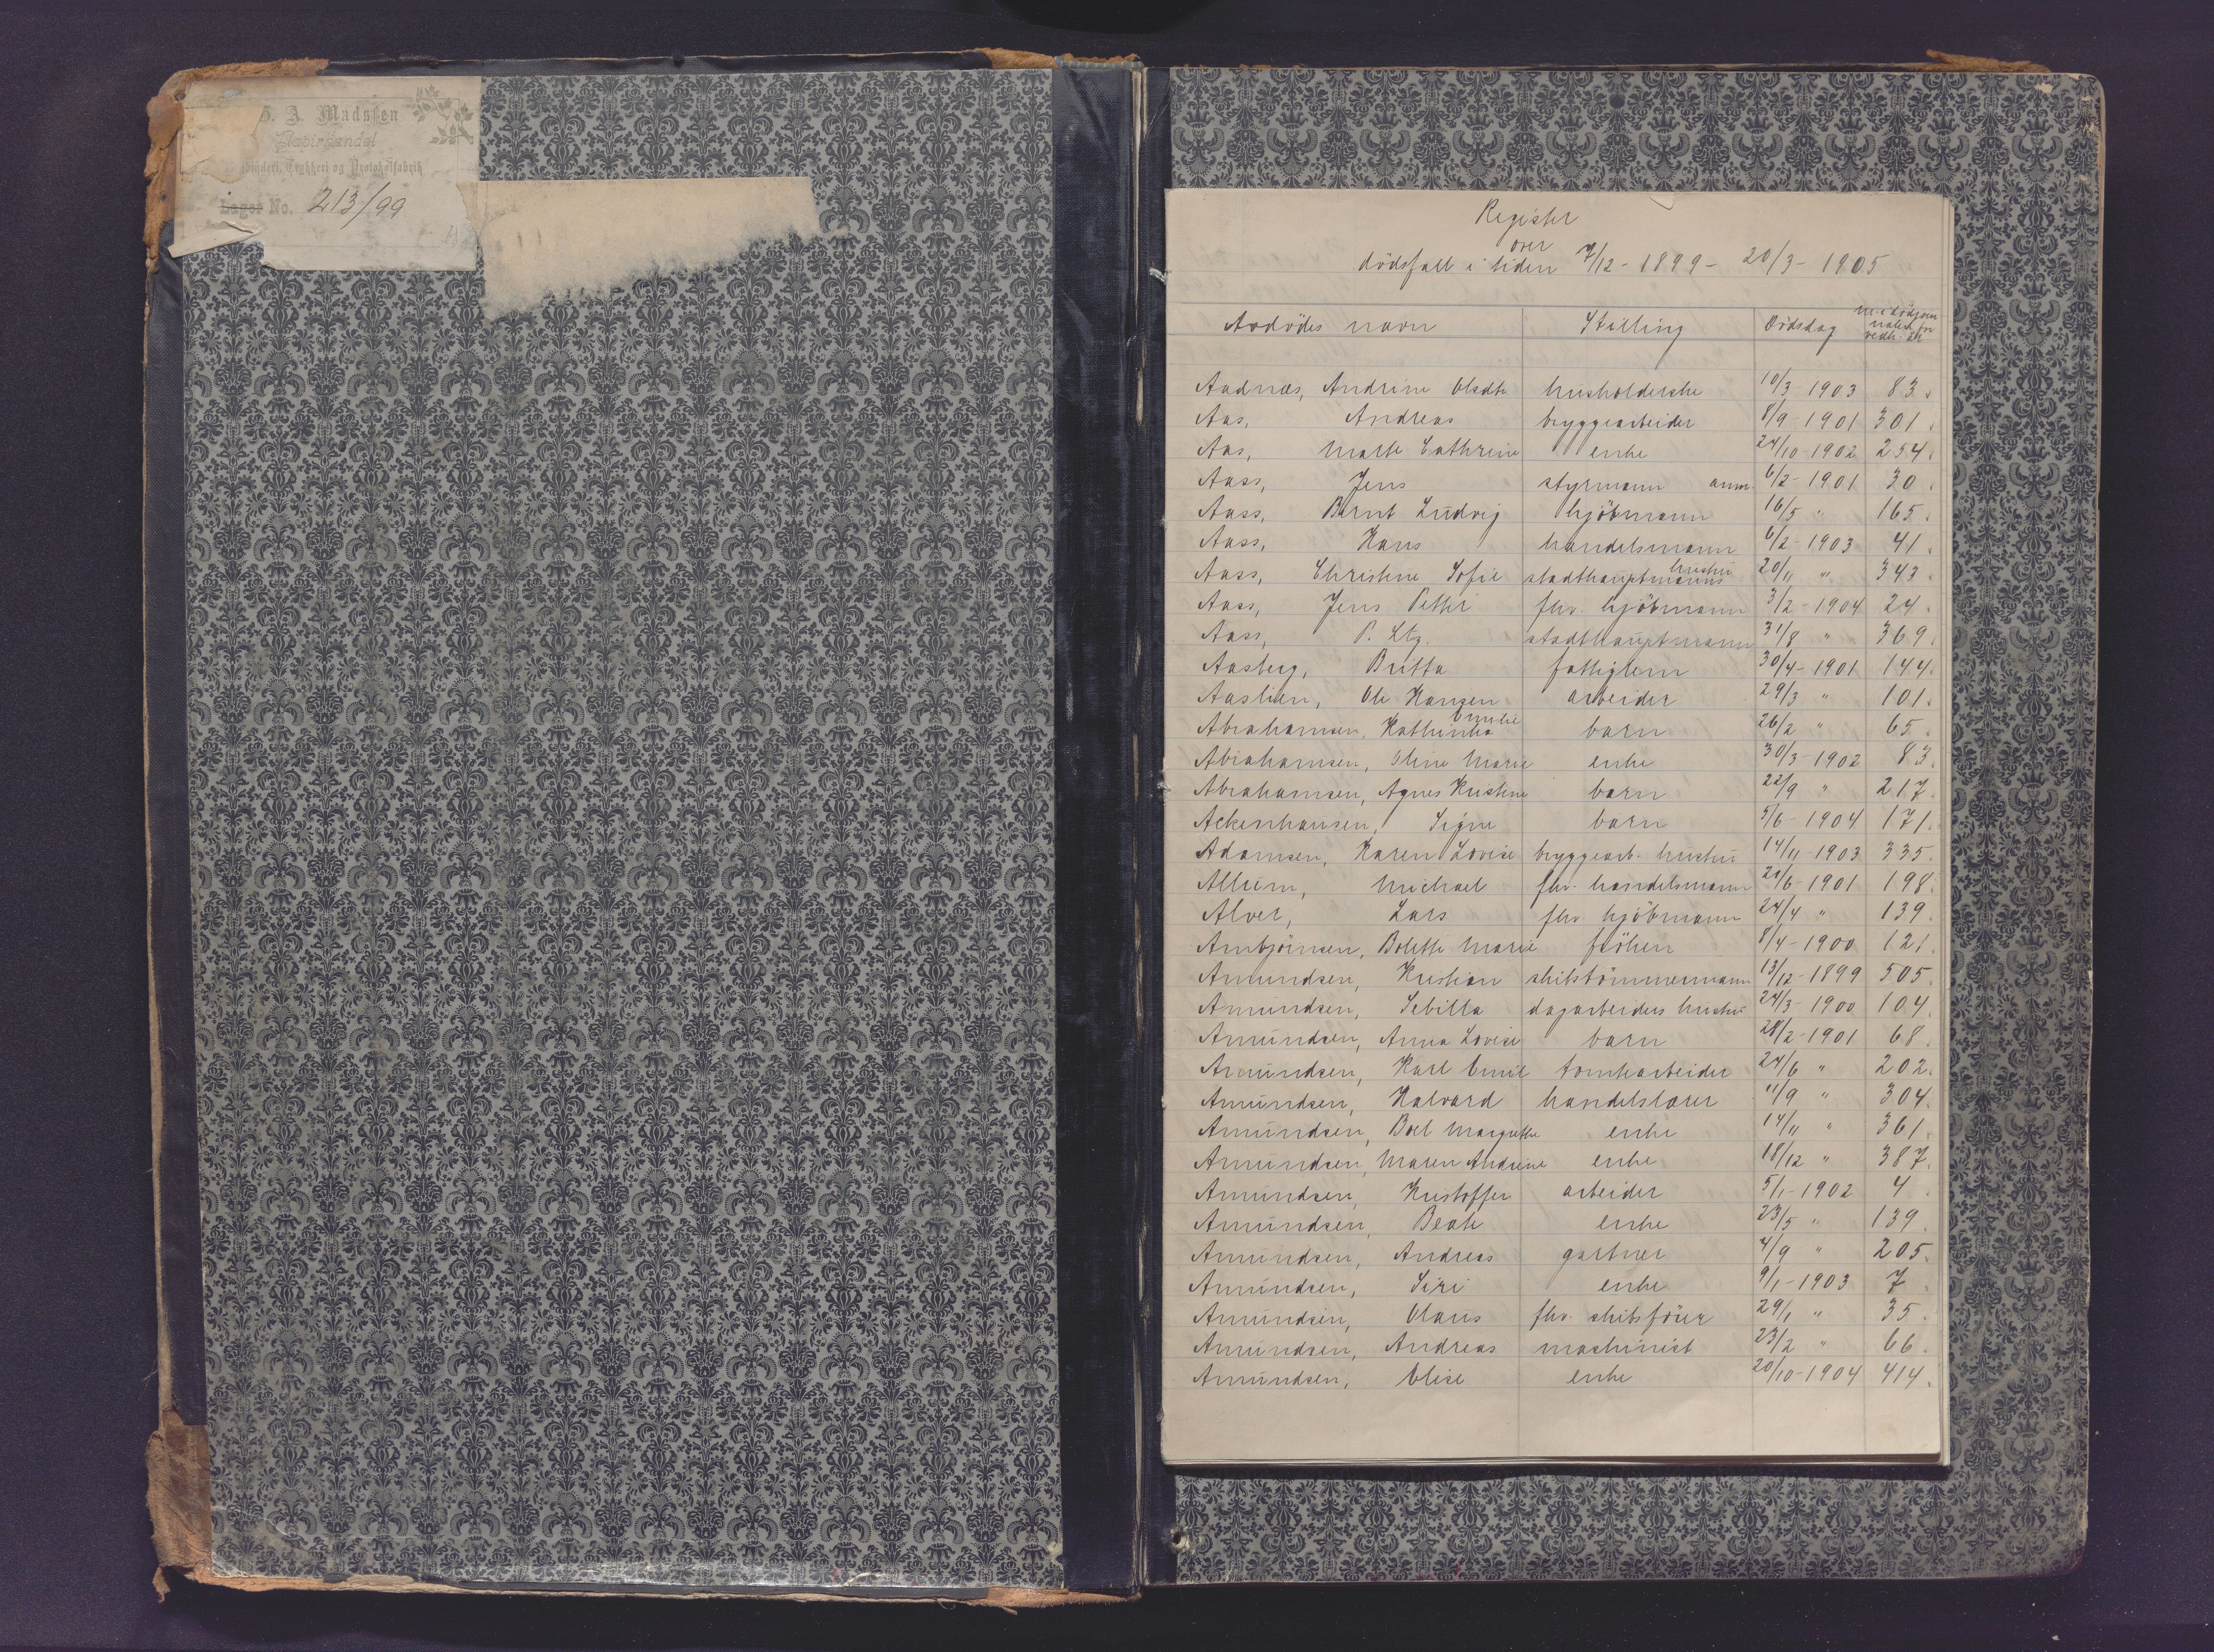 A. Madssen
Papirhandel
Trykkeri og Protokolfabrik
Lager No. 213/99
Register
over
dödsfall i tiden 7/12 - 1899 - 20/3 - 1905
Avdödes navn Stilling Dödsdag
Aadnæs, Andrine Olsdtr husholderske 10/3 1903 83.
Aas, Andreas bryggearbeider 8/9 - 1901 301.
Aas, Marte Cathrine enke 24/10 - 1902 254.
Aass, Jens styrmann anm. 6/2 - 1901 30.
Aass, Bernt Ludvig kjöbmann 16/5 " 165.
Aass, Hans handelsmann 6/2 - 1903 41.
Aass, Christine Sofie stadthauptmanns hustru 20/11 " 343.
Aass, Jens Petter fhv. kjöbmann 3/2 - 1904 24.
Aass, P. Ltz. stadthauptmann 31/8 " 369.
Aasberg, Britta fattiglem 30/4 - 1901 144.
Aaslien, Ole Hansen arbeider 29/3 " 101.
Abrahamsen, Kathinka Emilie barn 26/2 " 65.
Abrahamsen, Oline Marie enke 30/3 - 1902 83.
Abrahamsen, Agnes Kristine barn 22/9 " 217.
Ackenhausen, Signe barn 5/6 - 1904 171.
Adamsen, Karen Lovise bryggearb. hustru 14/11 - 1903 335.
Allum, Michael fhv. handelsmann 20/6 - 1901 198.
Alver, Lars fhv. kjöbmann 24/4 " 139.
Arnbjörnsen, Bolette Marie fröken 8/4 - 1900 121.
Amundsen, Kristian skibstömmermann 13/12 - 1899 505.
Amundsen, Sebilla dagarbeiders hustru 24/3 - 1900 104.
Amundsen, Anna Lovise barn 28/2 - 1901 68.
Amundsen, Karl Emil tomtearbeider 24/6 " 202.
Amundsen, Halvard handelslærer 11/9 " 304.
Amundsen, Boel Margrethe enke 14/11 " 361.
Amundsen, Maren Andrine enke 18/12 " 387.
Amundsen, Kristoffer arbeider 5/1 - 1902 4.
Amundsen, Beate enke 23/5 " 139.
Amundsen, Andreas gartner 4/9 " 205.
Amundsen, Siri enke 9/1 - 1903 7.
Amundsen, Olaus fhv. skibsförer 29/1 " 35.
Amundsen, Andreas maskinist 23/2 " 66.
Amundsen, Elise enke 20/10 - 1904 414.